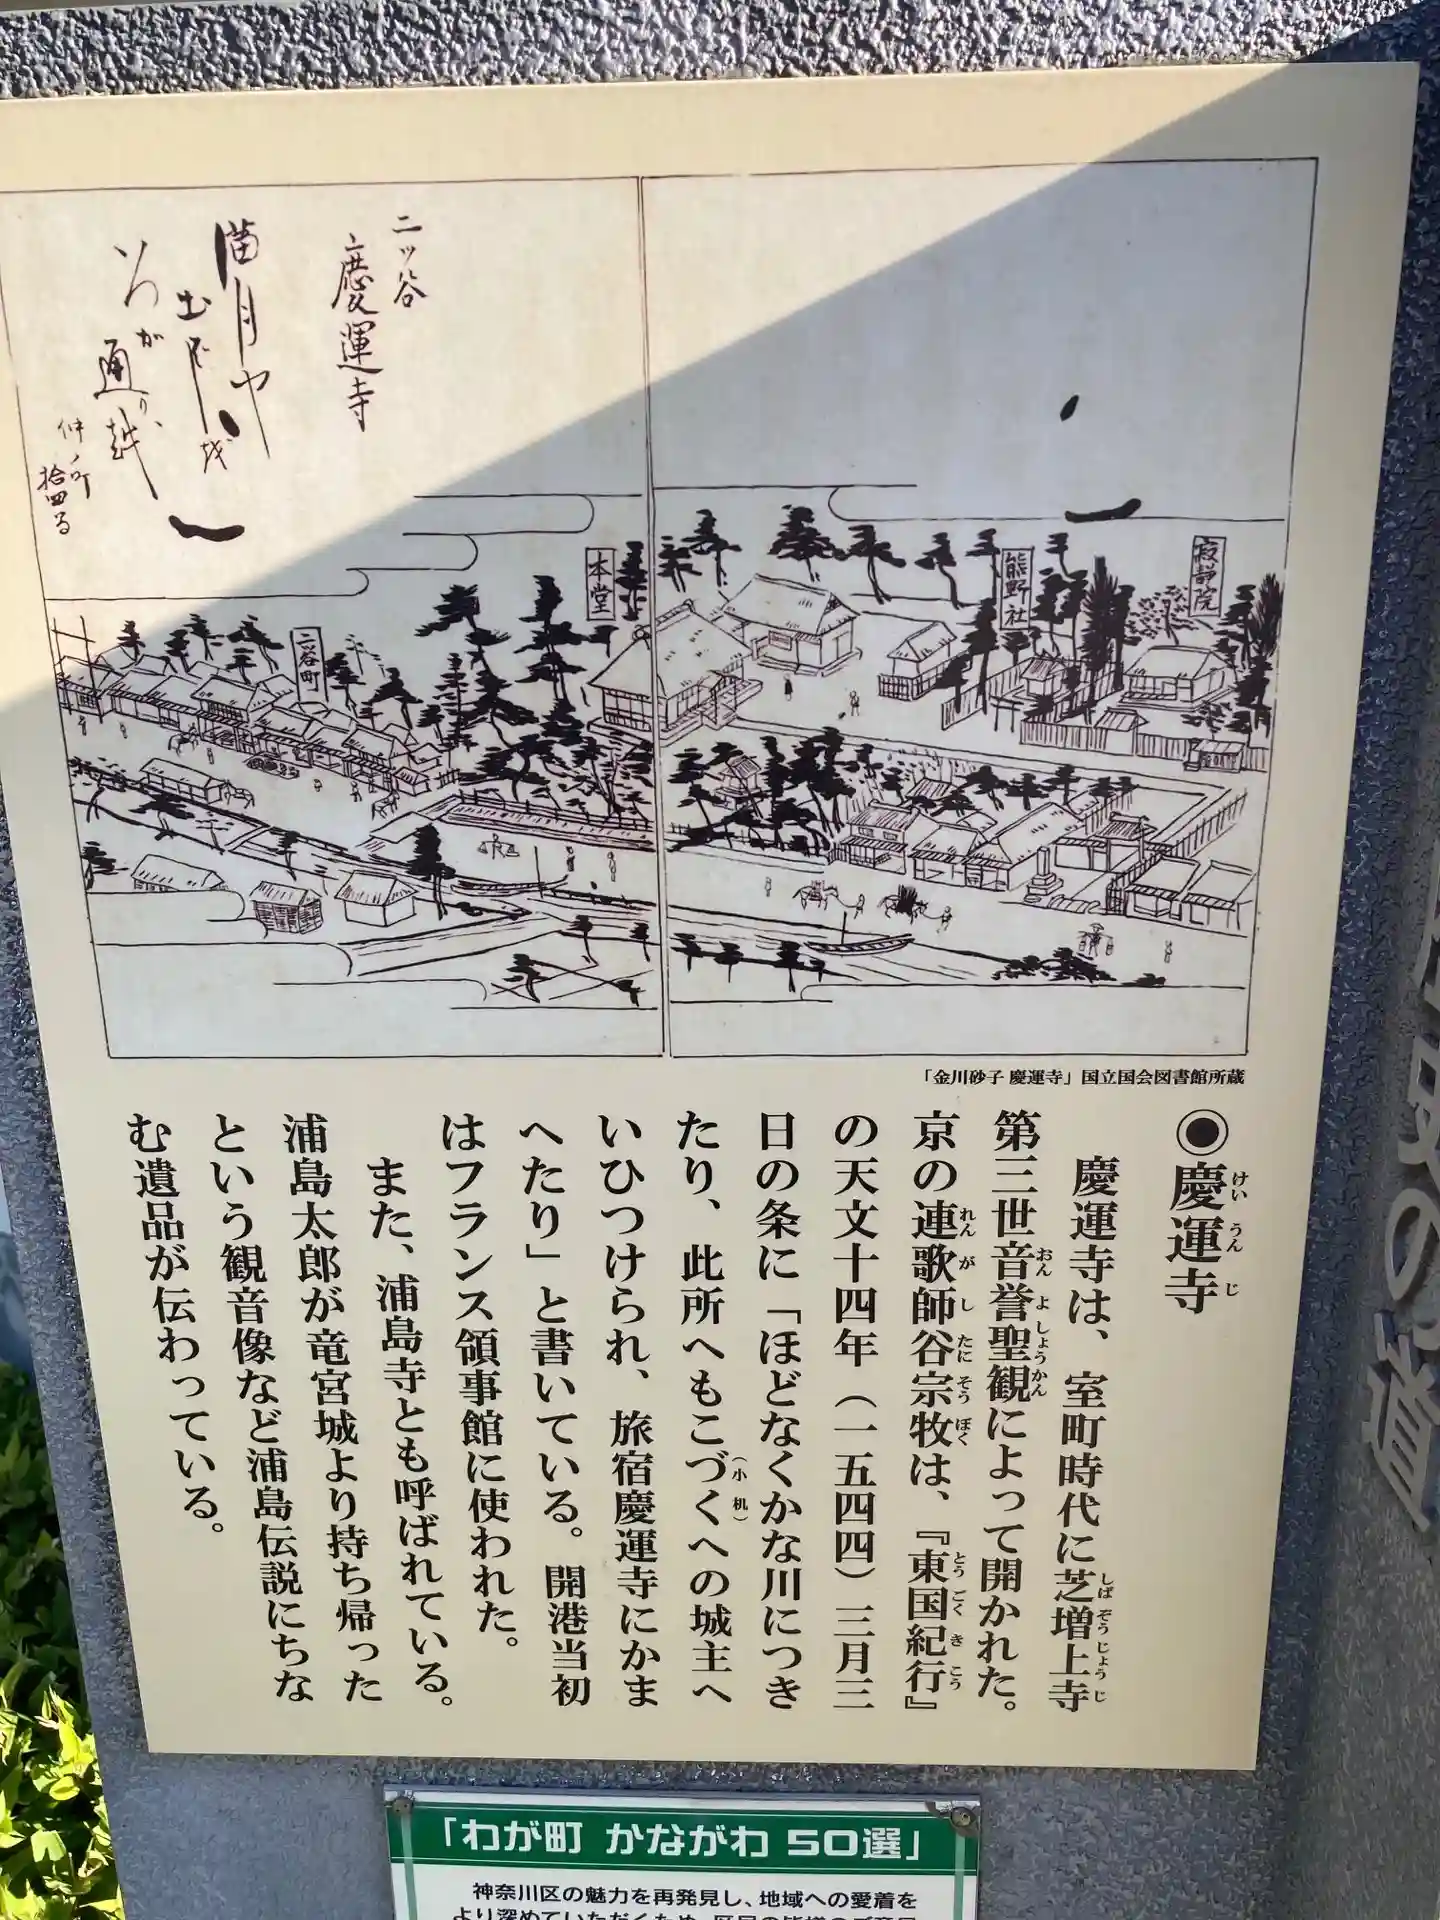 二ッ谷
慶運寺
満月や
仲ノ町
本堂
二ッ谷町
熊野社
寂静院
「金川砂子 慶運寺」国立国会図書館所蔵
◉慶運寺
けいうんじ
慶運寺は、室町時代に芝増上寺
しばぞうじょうじ
第三世音誉聖観によって開かれた。
おんよしょうかん
京の連歌師谷宗牧は、『東国紀行』
れんがしたにそうぼく
とうごくきこう
の天文十四年（一五四四）三月三
日の条に「ほどなくかな川につき
たり、此所へもこづくへの城主へ
（小机）
いひつけられ、旅宿慶運寺にかま
へたり」と書いている。開港当初
はフランス領事館に使われた。
また、浦島寺とも呼ばれている。
浦島太郎が竜宮城より持ち帰った
という観音像など浦島伝説にちな
む遺品が伝わっている。
「わが町 かながわ 50選」
神奈川区の魅力を再発見し、地域への愛着を